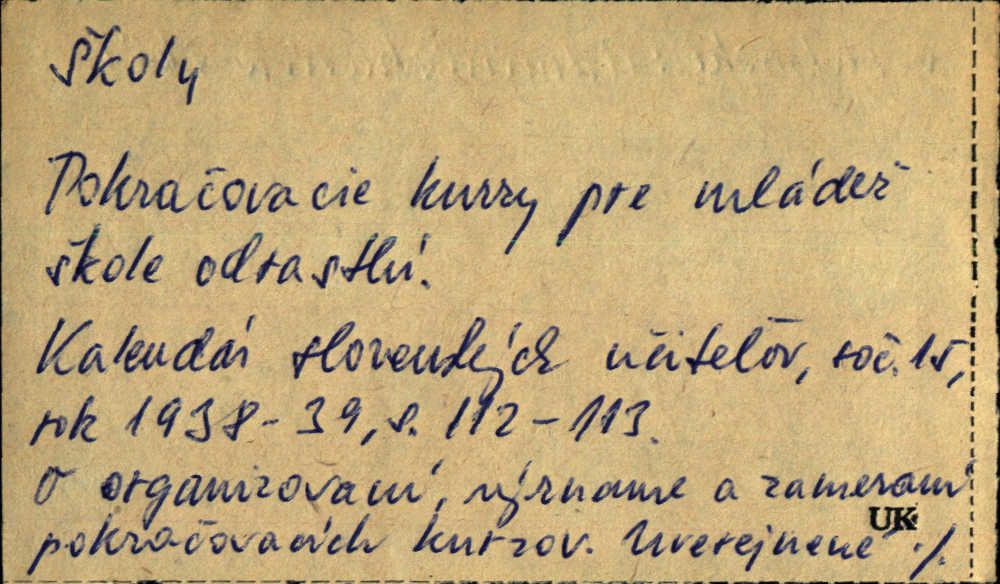 Školy
Pokračovacie kurzy pre mládež
škole odrastlú.
Kalendár slovenských učiteľov, roč. 15,
rok 1938-39, s. 112-113.
O organizovaní, význame a zameraní
UK
pokračovacích kurzov. Uverejnené ./.